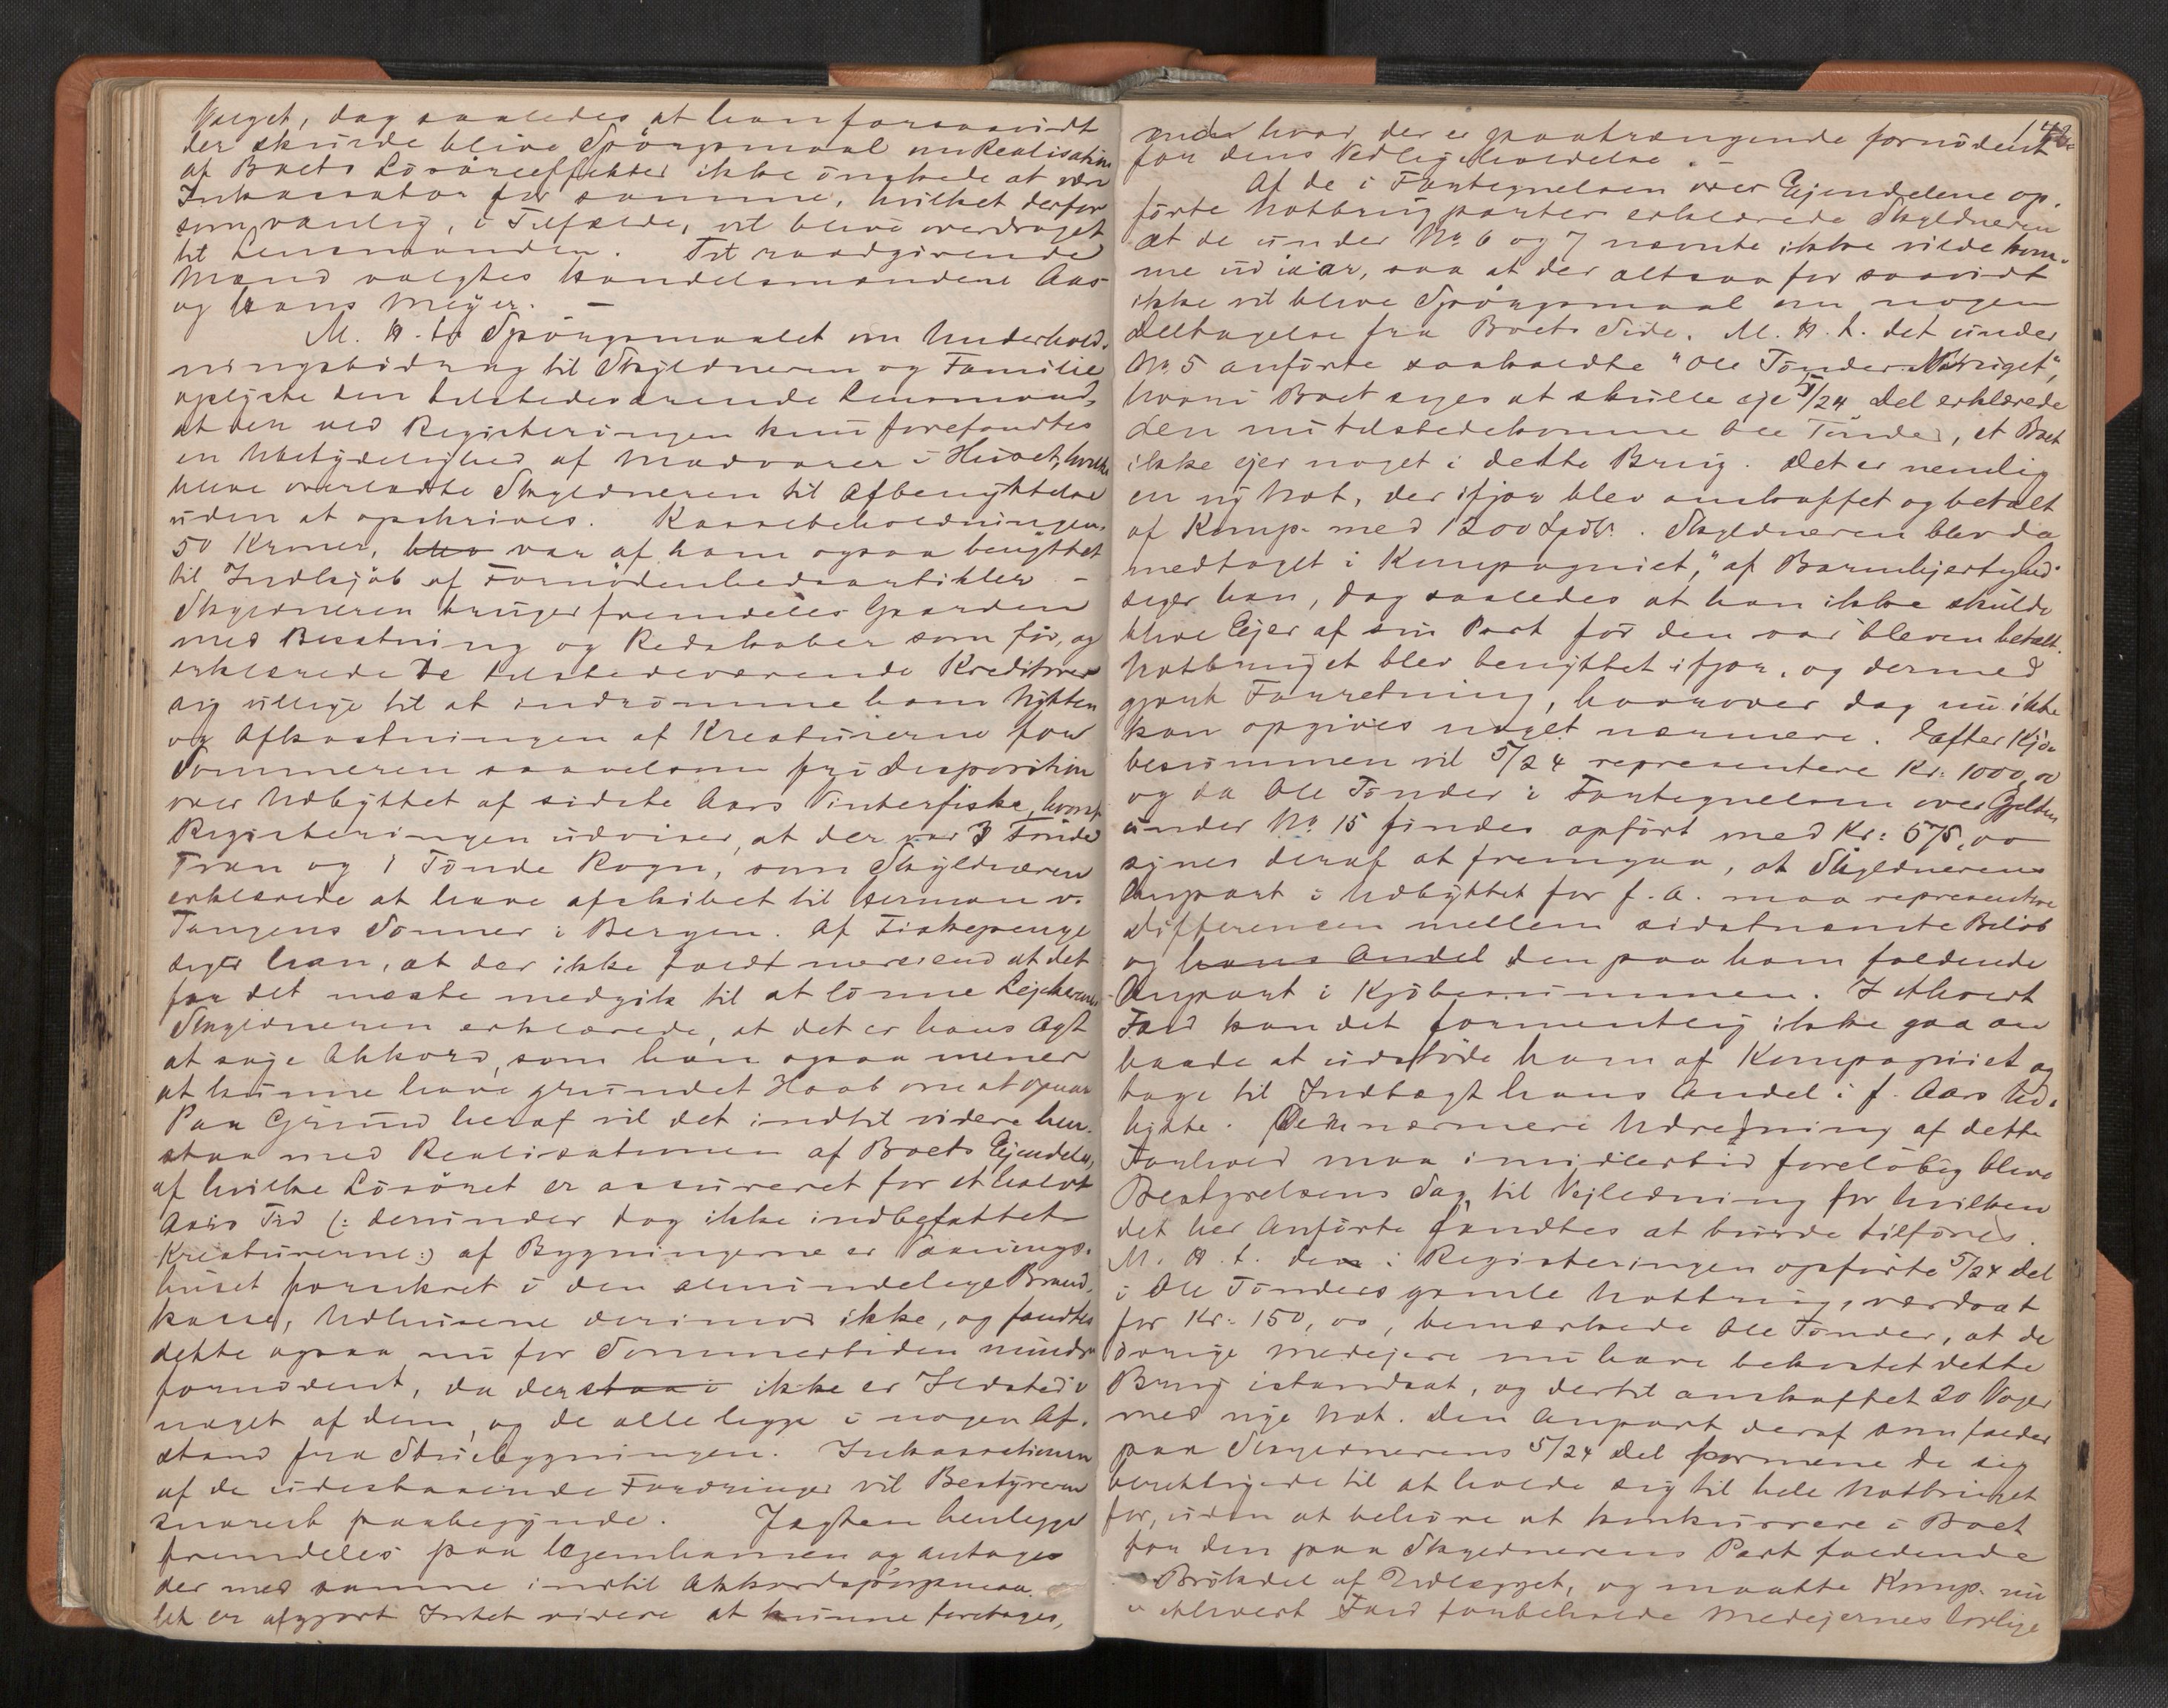 Valget, dog saaledes at han forsaavidt
der skulde blive Spörgsmaal om Realisation
af Boets Lösöreeffekter ikke önskede at være
Inkassator for samme, hvilket derfor
som vanlig, i Tilfælde, vil blive overdraget
til Lensmanden. Til raadgivende
Mænd valgtes Handelsmændene Aas
og Hans Meyer. —
M. H. t. Spörgsmaalet om Underhold-
ningsbidrag til Skyldneren og Familie
oplyste den tilstedeværende Lensmand,
at den ved Registeringen kun forefandtes
en Ubetydelighed af Madvarer i Huset, hvilke
bleve overladte Skyldneren til Afbenyttelse
uden at opskrives. Kassebeholdningen,
50 Kroner, blev var af ham ogsaa benyttet
til Indkjöb af Fornödenhedsartikler. —
Skyldneren bruger fremdeles Gaarden
med Besætning og Redskaber som för, og
erklærede De tilstedeværende Kreditorer
sig villige til at indrömme ham Nytten
og Afkastningen af Kreaturerne for
Sommeren saavelsom fri Disposition
over Udbyttet af sidste Aars Vinterfiske, hvoraf
Registeringen udviser, at der var 3 Tönder
Tran og 1 Tönde Rogn, som Skyldneren
erklærede at have afskibet til Herman v.
Tangens Sönner i Bergen. Af Fiskepenge
siger han, at der ikke faldt mere end at det
for det meste medgik til at lönne Lejekarene
Skyldneren erklærede, at det er hans Agt
at söge Akkord, som han ogsaa mener
at kunne have grundet Haab om at opnaa
Paa Grund heraf vil det indtil videre hen-
staa med Realisationen af Boets Ejendele,
af hvilke Lösöret er assureret for et halvt
Aars Tid (: derunder dog ikke indbefattet
Kreaturerne:) af Bygningerne er Vaanings-
huset forsikret i den almindelige Brand-
kasse, Udhusene derimod ikke, og fandtes
dette ogsaa nu for Sommertiden mindre
fornödent, da der staa i ikke er Ildsted i
noget af dem, og de alle ligge i nogen Af-
stand fra Stuebygningen. Inkassationen
af de udestaaende Fordringer vil Bestyreren
snarest paabegynde. Jagten henligger
fremdeles paa Hjemhavnen og antages
der med samme indtil Akkordspörgsmaa-
let er afgjort Intet videre at kunne foretages,
142
uden hvad der er paatrængende fornödent
for dens Vedligeholdelse. —
Af de i Fortegnelsen over Ejendelene op-
förte Notbrugparter erklærede Skyldneren
at de under No 6 og 7 nævnte ikke vilde kom-
me ud iaar, saa at der altsaa for saavidt
ikke vil blive Spörgsmaal om nogen
Deltagelse fra Boets Side. M. H. t. det under
No 5 anförte saakaldte "Ole Tönder Notbruget",
hvori Boet siges at skulle eje 5/24 Del erklærede
den nu tilstedekomne Ole Tönder, at Boet
ikke ejer noget i dette Brug. Det er nemlig
en ny Not, der ifjor blev anskaffet og betalt
af Komp. med 1200 Spdlr. Skyldneren blev da
medtaget i Kompagniet, "af Barmhjertighed"
siger han, dog saaledes at han ikke skulde
blive Ejer af sin Part för den var bleven betalt.
Notbruget blev benyttet ifjor, og dermed
gjort Forretning, hvorover dog nu ikke
kan opgives noget nærmere. Efter Kjö-
besummen vil 5/24 representere Kr: 1000,00
og da Ole Tönder i Fortegnelsen over Gjelden
under No 15 findes opfört med Kr: 575,00
synes deraf at fremgaa, at Skyldnerens
Anpart i Udbyttet for f. A. maa representere
Differencen mellem sidstnævnte Belöb
og hans Andel den paa ham faldende
Anpart i Kjöbesummen. I ethvert
Fald kan det formentlig ikke gaa an
baade at udstöde ham af Kompagniet og
tage til Indtægt hans Andel i f. Aars Ud-
bytte. Den nærmere Udredning af dette
Forhold maa imidlertid forelöbig blive
Bestyrelsens Sag, til Vejledning for hvilken
det her Anförte fandtes at burde tilföres.
M. H. t. den i Registeringen opförte 5/24 Del
i Ole Tönders gamle Notbrug, værdsat
for Kr: 150,00, bemærkede Ole Tönder, at de
övrige Medejere nu have bekostet dette
Brug istandsat, og dertil anskaffet 20 Voger
med nye Not. Den Anpart deraf som falder
paa Skyldnerens 5/24 Del formene de sig
berettigede til at holde sig til hele Notbruget
for, uden at behöve at konkurrere i Boet
for den paa Skyldnerens Part faldende
Brökdel af Udlægget, og maatte Komp. nu
i ethvert Fald forbeholde Medejernes lovlige